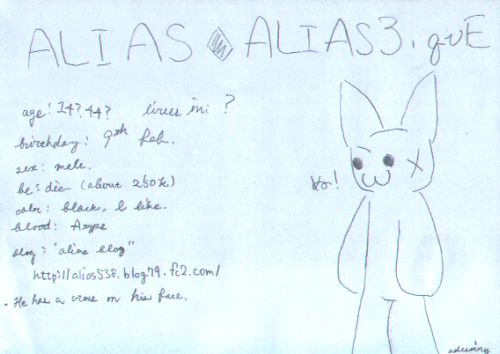 ALIAS ◆ ALIAS3.quE
age: 14? 44? lives in: ?
birthday: 9th Feb.
sex: male.
be: die (about 250%)
color: black. I like.
blood: A type
blog: "alias blog"
http://alias538.blog79.fc2.com/
He has a cross on his face.